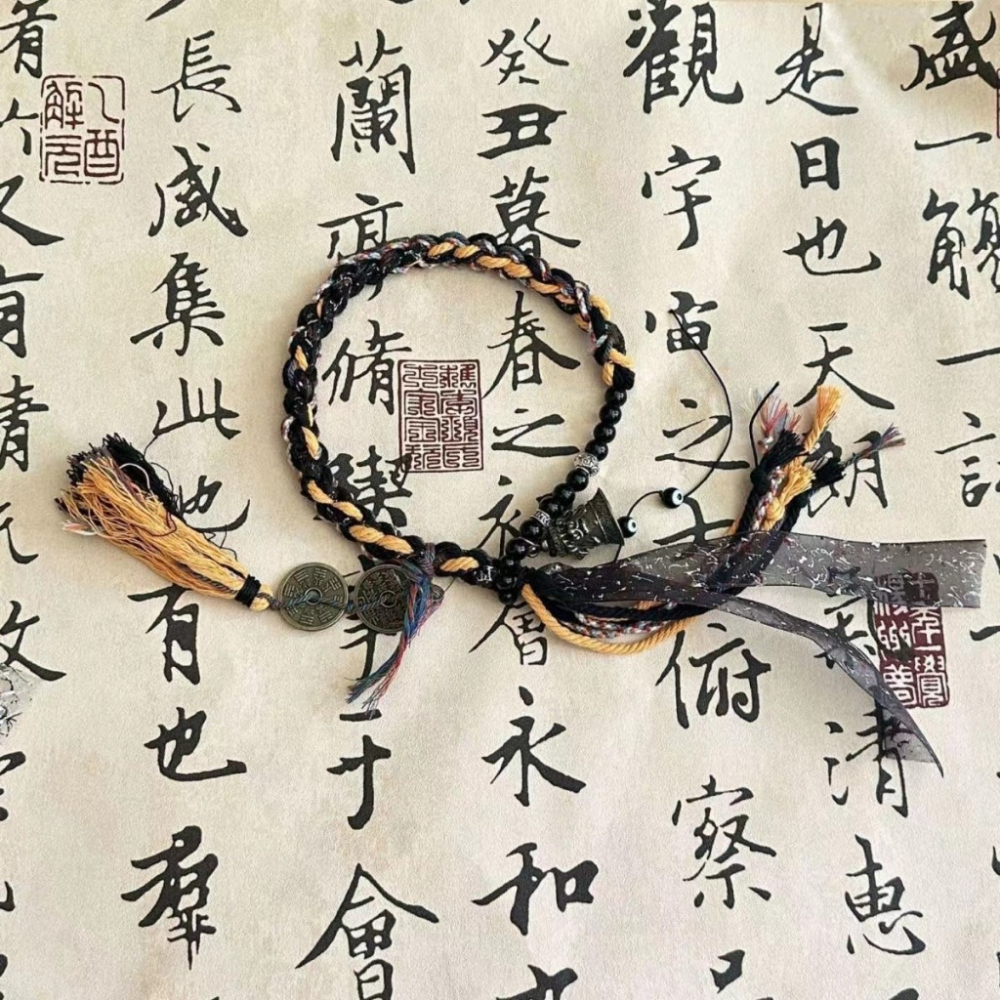 盛一觴一
是日也天朗氣清惠
觀宇宙之大俯察
癸丑暮春之初會永和
蘭亭脩禊事于會
長咸集此地有也群
竹又有清流
乙酉解元